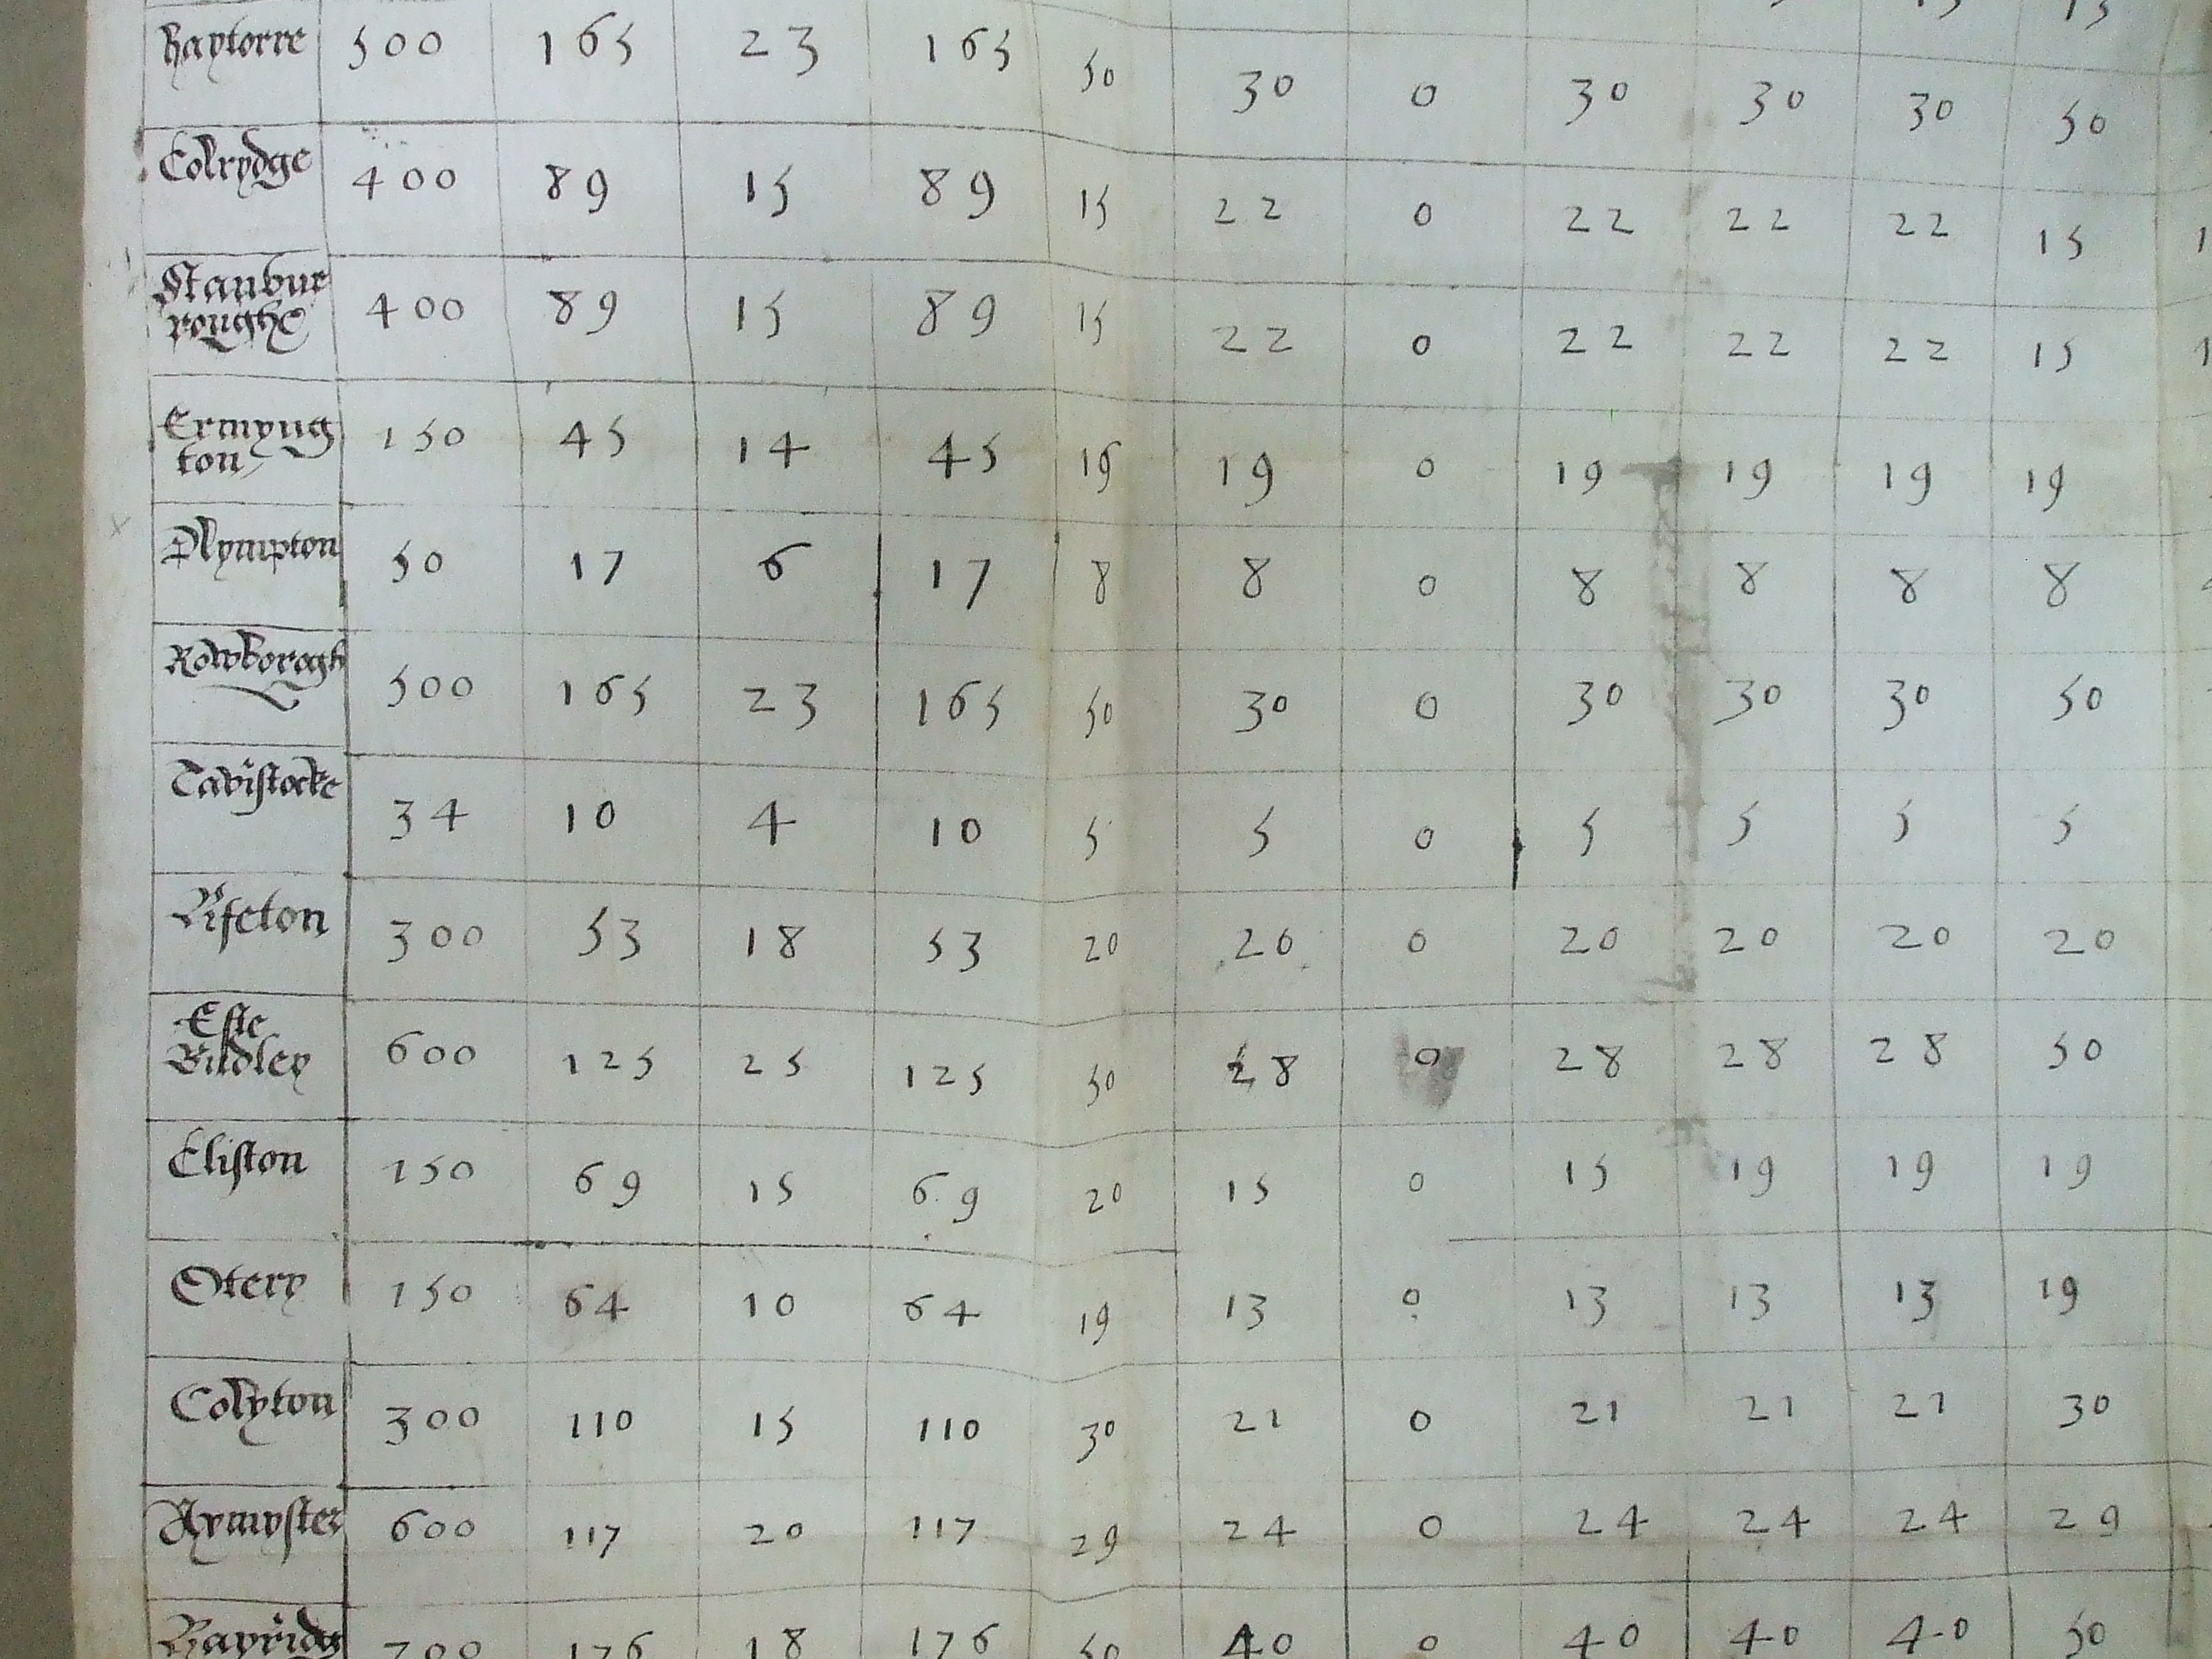 15 15
Haytorre 500 165 23 165 50 30 0 30 30 30 50
Colrydge 400 89 15 89 15 22 0 22 22 22 15 1
Stanbur
roughe 400 89 15 89 15 22 0 22 22 22 15 1
Ermyng
ton 150 45 14 45 19 19 0 19 19 19 19
Plympton 50 17 6 17 8 8 0 8 8 8 8
Rowborogh 500 165 23 165 50 30 0 30 30 30 50
Tavistocke 34 10 4 10 5 5 0 5 5 5 5
Lifeton 300 53 18 53 20 20 0 20 20 20 20
Este
Budley 600 125 25 125 50 28 0 28 28 28 50
Cliston 150 69 15 69 20 15 0 15 19 19 19
Otery 150 64 10 64 19 13 0 13 13 13 19
Colyton 300 110 15 110 30 21 0 21 21 21 30
Axmyster 600 117 20 117 29 24 0 24 24 24 29
Hayridg 700 176 18 176 50 40 0 40 40 40 50